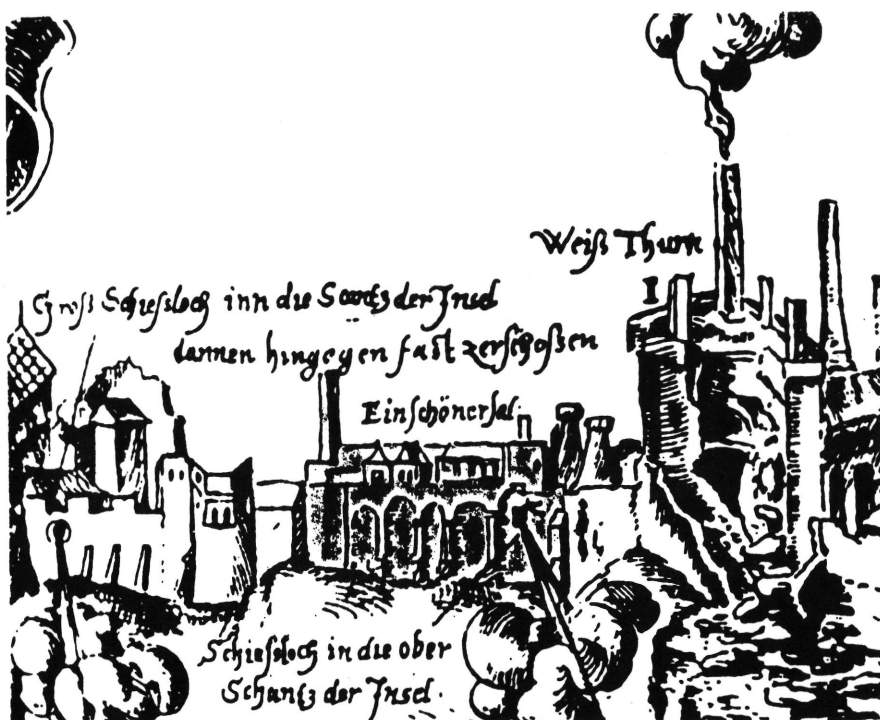 Weiß Thurn
I
Groß Schiessloch inn die Scantz der Insel
darinen hingegen fast zerschoßen
Ein schöner sal.
Schiessloch in die ober
Schantz der Insel.